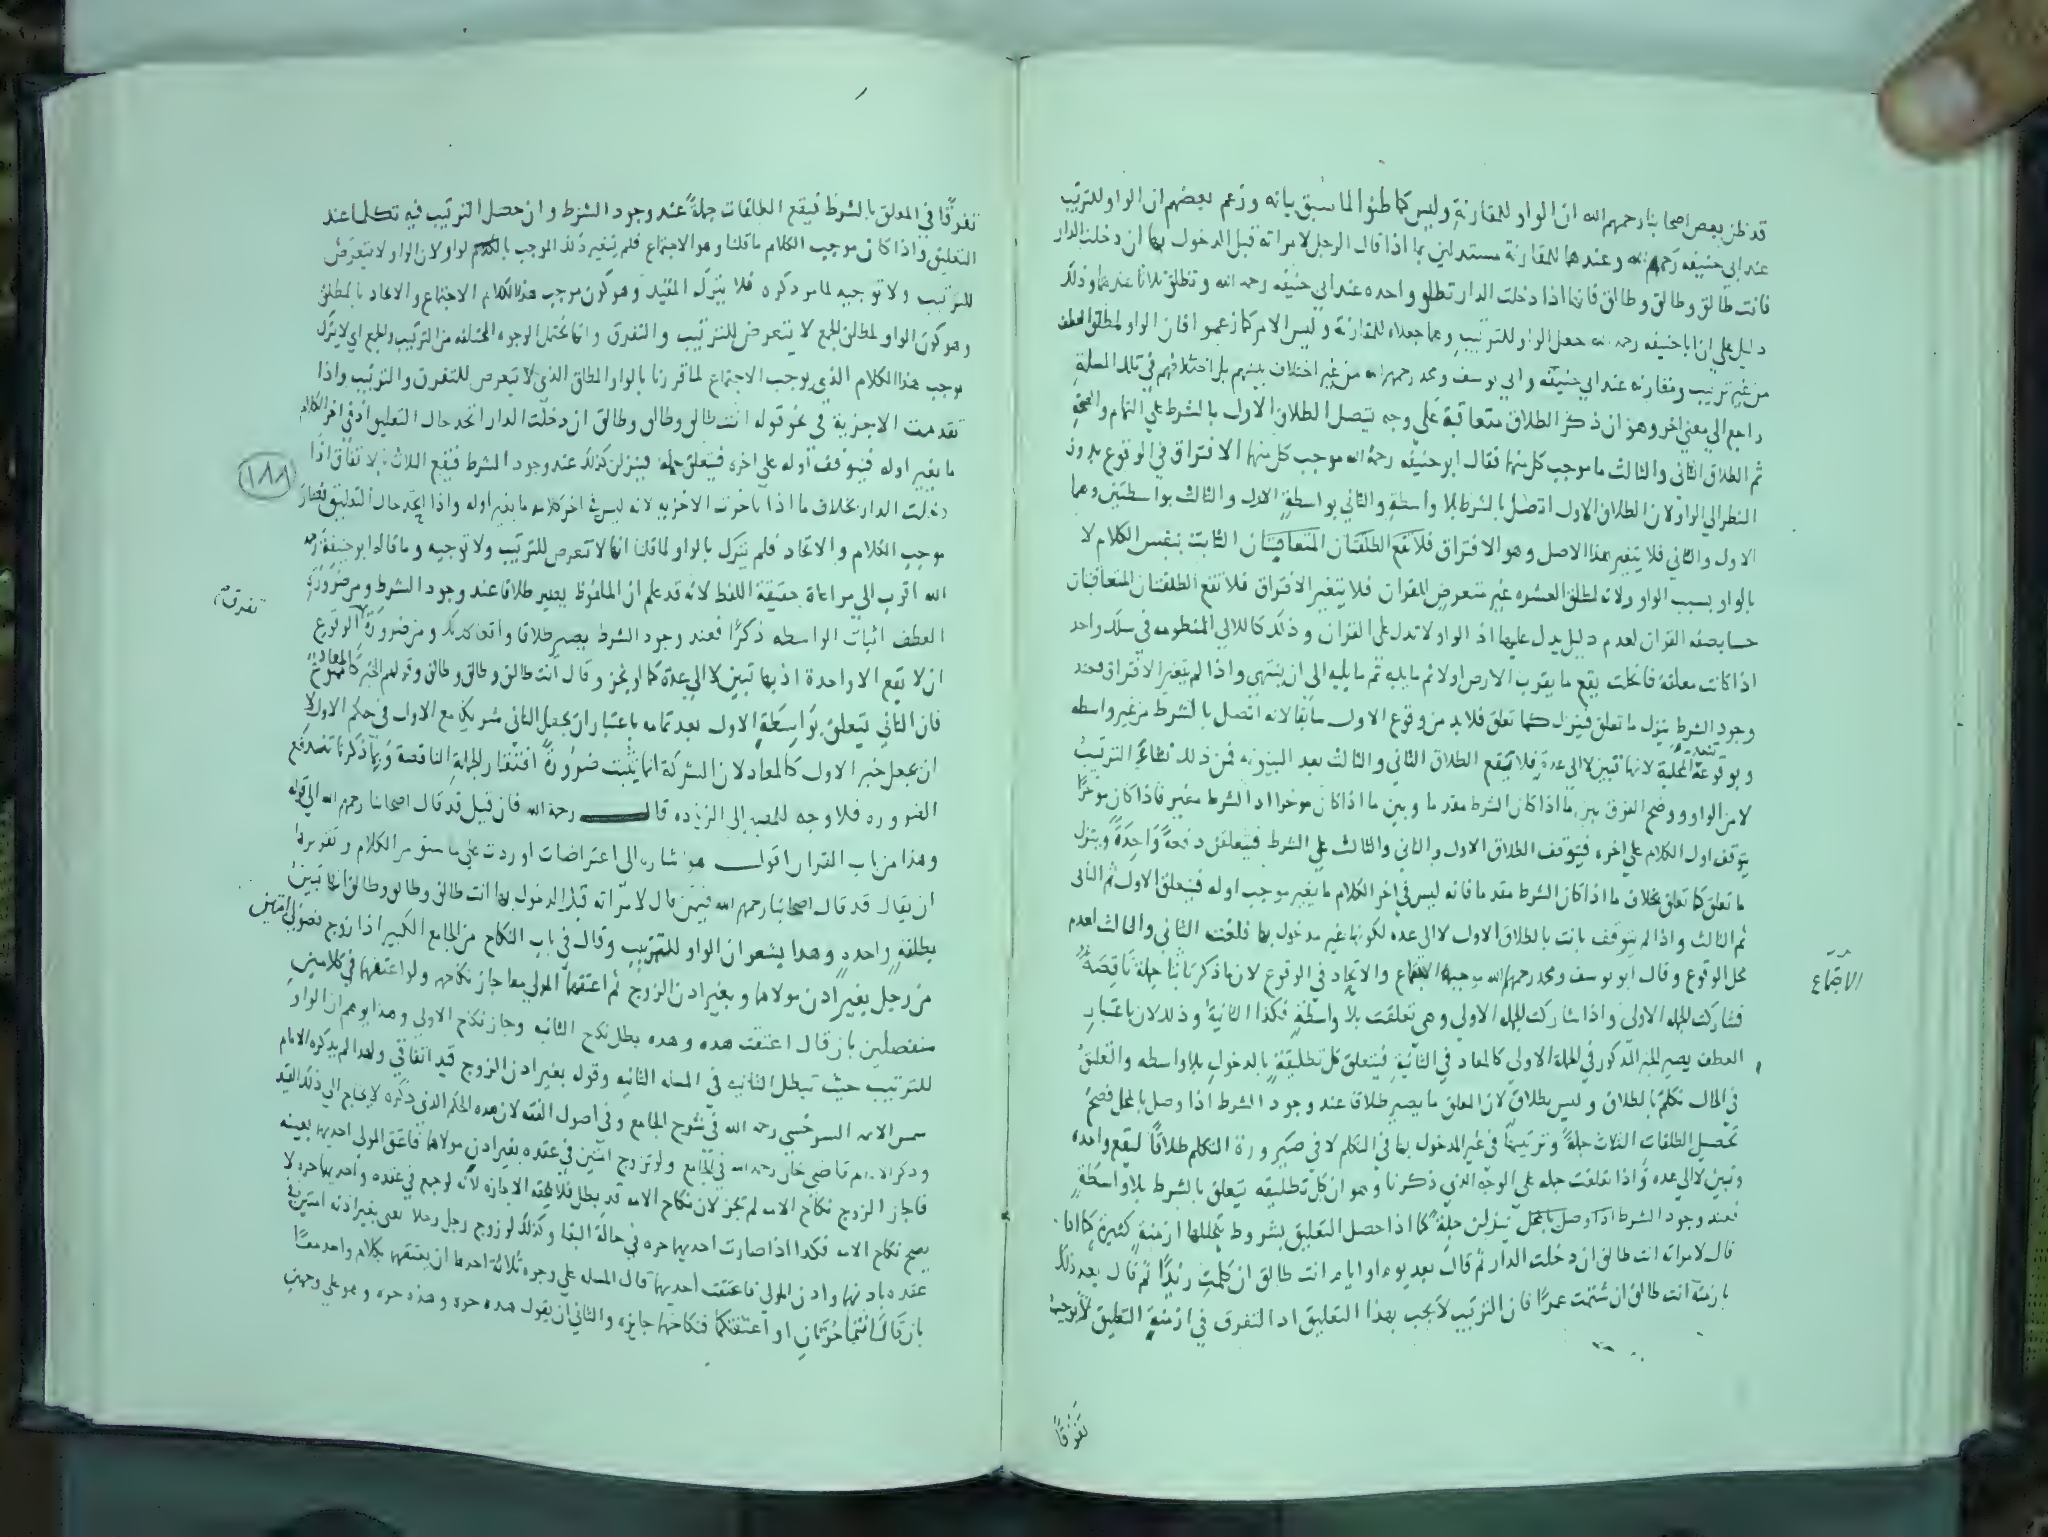 قد ظن بعض اصحابنا رحمهم الله ان الواو للمقارنة وليس كما ظنوا لما سبق بيانه وزعم بعضهم ان الواو للترتيب
عند ابي حنيفه رحمه الله وعندهما للمقارنة مستدلين بما اذا قال الرجل لامراته قبل الدخول بها ان دخلت الدار
فانت طالق وطالق وطالق فانها اذا دخلت الدار تطلق واحده عند ابي حنيفه رحمه الله وتطلق ثلاثا عندهما وذلك
دليل على ان ابا حنيفه رحمه الله جعل الواو للترتيب وهما جعلاه للمقارنة وليس الامر كما زعموا فان الواو لمطلق العطف
من غير ترتيب ومقارنه عند ابي حنيفه وابي يوسف ومحمد رحمهم الله من غير اختلاف بينهم بل اختلافهم في تلك المسلة
راجع الى معنى اخر وهو ان ذكر الطلاق متعاقبة على وجه يتصل الطلاق الاول بالشرط على التمام والصحة
ثم الطلاق الثاني والثالث ما موجب كل منها فقال ابو حنيفه رحمه الله موجب كل منها الافتراق في الوقوع بدون
النظر الى الواو لان الطلاق الاول اتصل بالشرط بلا واسطة والثاني بواسطة الاول والثالث بواسطتين وهما
الاول والثاني فلا يتغير هذا الاصل وهو الافتراق فلا تقع الطلقتان المتعاقبتان الثابت بنفس الكلام لا
بالواو بسبب الواو ولانه لمطلق العشره غير متعرض للقران فلا يتغير الافتراق فلا تقع الطلقتان المتعاقبتان
حسا بصفه القران لعدم دليل يدل عليها اذ الواو لا تدل على القران وذلك كاللالي المنظومه في سلك واحد
اذا كانت معلقة فانحلت يقع ما يقرب الارض اولا ثم ما يليه ثم ما يليه الى ان ينتهي واذا لم يتغير الافتراق فعند
وجود الشرط ينزل ما تعلق فينزل كما تعلق فلا بد من وقوع الاول سابقا لانه اتصل بالشرط من غير واسطه
وبوقوعه تنعدم المحلية لانها تبين لا الى عدة فلا يقع الطلاق الثاني والثالث بعد البينونه فمن ذلك نشا الترتيب
لا من الواو ووضح الفرق بين ما اذا كان الشرط مقدما وبين ما اذا كان موخرا اذ الشرط مغير فاذا كان موخرا
يتوقف اول الكلام على اخره فيتوقف الطلاق الاول والثاني والثالث على الشرط فيتعلقن دفعة واحدة وينزل
ما تعلق كما تعلق بخلاف ما اذا كان الشرط مقدما فانه ليس في اخر الكلام ما يغير موجب اوله فيتعلق الاول ثم الثاني
ثم الثالث واذا لم يتوقف بانت بالطلاق الاول لا الى عده لكونها غير مدخول بها فلغت الثاني والثالث لعدم
محل الوقوع وقال ابو يوسف ومحمد رحمهم الله موجبه الاجتماع والاتحاد في الوقوع لان ما ذكر ثانيا جملة ناقصة
الاجتماع
فشاركت الجمله الاولى واذا شاركت الجمله الاولى وهي تعلقت بلا واسطة فكذا الثانية وذلك لان باعتبار
العطف يصير الخبر المذكور في الجملة الاولى كالمعاد في الثانية فيتعلق كل تطليقة بالدخول بلا واسطه والتعلق
في الحال تكلم بالطلاق وليس بطلاق لان المعلق ما يصير طلاقا عند وجود الشرط اذا وصل بالمحل فصح
تحصيل الطلقات الثلاث جملة وترتيبها في غير المدخول بها في التكلم لا في صيرورة التكلم طلاقا ليقع واحده
وتبين لا الى عده واذا تعلقت جمله على الوجه الذي ذكرنا وهو ان كل تطليقه يتعلق بالشرط بلا واسطة
فعند وجود الشرط اذا وصل بالمحل ينزلن جملة كما اذا حصل التعليق بشروط يتخللها ازمنة كثيرة كما اذا
قال لامراته انت طالق ان دخلت الدار ثم قال بعد يوم او ايام انت طالق ان كلمت زيدا ثم قال بعد ذلك
بازمنة انت طالق ان شتمت عمرا فان الترتيب لا يجب بهذا التعليق اذ التفرق في ازمنة التعليق لا يوجب
تفرقا
تفرقا في المعلق بالشرط فيقع الطلقات جملة عند وجود الشرط وان حصل الترتيب فيه تكلما عند
التعليق واذا كان موجب الكلام ما قلنا وهو الاجتماع فلم يتغير ذلك الموجب بالواو لان الواو لا تتعرض
للترتيب ولا توجبه لما مر ذكره فلا يترك المقيد وهو كون موجب هذا الكلام الاجتماع والاتحاد بالمطلق
وهو كون الواو لمطلق الجمع لا يتعرض للترتيب والتفرق وانما يحتمل الوجوه المختلفه من الترتيب والجمع اي لا يترك
موجب هذا الكلام الذي يوجب الاجتماع لما قررنا بالواو المطلق الذي لا يتعرض للتفرق والترتيب واذا
تقدمت الاجزية في نحو قوله انت طالق وطالق وطالق ان دخلت الدار اتحد حال التعليق اذ في اخر الكلام
ما يغير اوله فيتوقف اوله على اخره فيتعلق جملة فينزلن كذلك عند وجود الشرط فيقع الثلاث بالاتفاق اذا
١٨٨
دخلت الدار بخلاف ما اذا تاخرت الاجزيه لانه ليس في اخر كلامه ما يغير اوله واذا اتحد حال التعليق فصار
موجب الكلام والاتحاد فلم يترك بالواو لما قلنا انها لا تتعرض للترتيب ولا توجبه وما قاله ابو حنيفة رحمه
الله اقرب الى مراعاة حقيقة اللفظ لانه قد علم ان الملفوظ يصير طلاقا عند وجود الشرط ومن ضرورة
تفرقه
العطف اثبات الواسطه ذكرا فعند وجود الشرط يصير طلاقا واقعا كذلك ومن ضرورة الوقوع
ان لا تقع الا واحدة اذ بها تبين لا الى عدة كما لو نجز وقال انت طالق وطالق وطالق وقولهم الخبر كالمعاد ممنوع
فان الثاني يتعلق بواسطة الاول بعد تمامه باعتبار ان يجعل الثاني شريكا مع الاول في حكم الاول لا
ان يجعل خبر الاول كالمعاد لان الشركة انما تثبت ضرورة افتقار الجملة الناقصة وبما ذكرنا تندفع
الضروره فلا وجه للمصير الى الزياده قال رحمه الله فان قيل قد قال اصحابنا رحمهم الله الى قوله
وهذا من باب القران اقول هو اشاره الى اعتراضات اوردت على ما سبق من الكلام وتقريرها
ان يقال قد قال اصحابنا رحمهم الله فيمن قال لامراته قبل الدخول بها انت طالق وطالق وطالق انها تبين
بطلقة واحدة وهذا يشعر ان الواو للترتيب وقال في باب النكاح من الجامع الكبير اذا زوج فضولي امتين
من رجل بغير اذن مولاهما وبغير اذن الزوج ثم اعتقهما المولى معا جاز نكاحهما ولو اعتقهما في كلامين
منفصلين بان قال اعتقت هذه وهذه بطل نكاح الثانيه وجاز نكاح الاولى وهذا يوهم ان الواو
للترتيب حيث تبطل الثانيه في المسله الثانيه وقوله بغير اذن الزوج قيد اتفاقي ولهذا لم يذكره الامام
شمس الائمه السرخسي رحمه الله في شرح الجامع وفي اصول الفقه لان هذه الحكم الذي ذكره لا يحتاج الى ذلك القيد
وذكر الامام قاضي خان رحمه الله في الجامع ولو تزوج امتين في عقده بغير اذن مولاهما فاعتق المولى احديهما بعينه
فاجاز الزوج نكاح الامه لم تجز لان نكاح الامه قد بطل فلا يلحقه الاجازه لانه لو جمع في عقده واحديهما حره لا
يصح نكاح الامه فكذا اذا صارت احديهما حره في حالة البقا وكذلك لو زوج رجل رجلا يعني بغير اذنه امتين في
عقده باذنهما واذن المولى فاعتقت احديهما قال المسله على وجوه ثلاثة احدها ان يعتقهما بكلام واحد معا
بان قال انتما حرتان او اعتقتكما فنكاحهما جايز والثاني ان يقول هذه حره وهذه حره وهو على وجهين